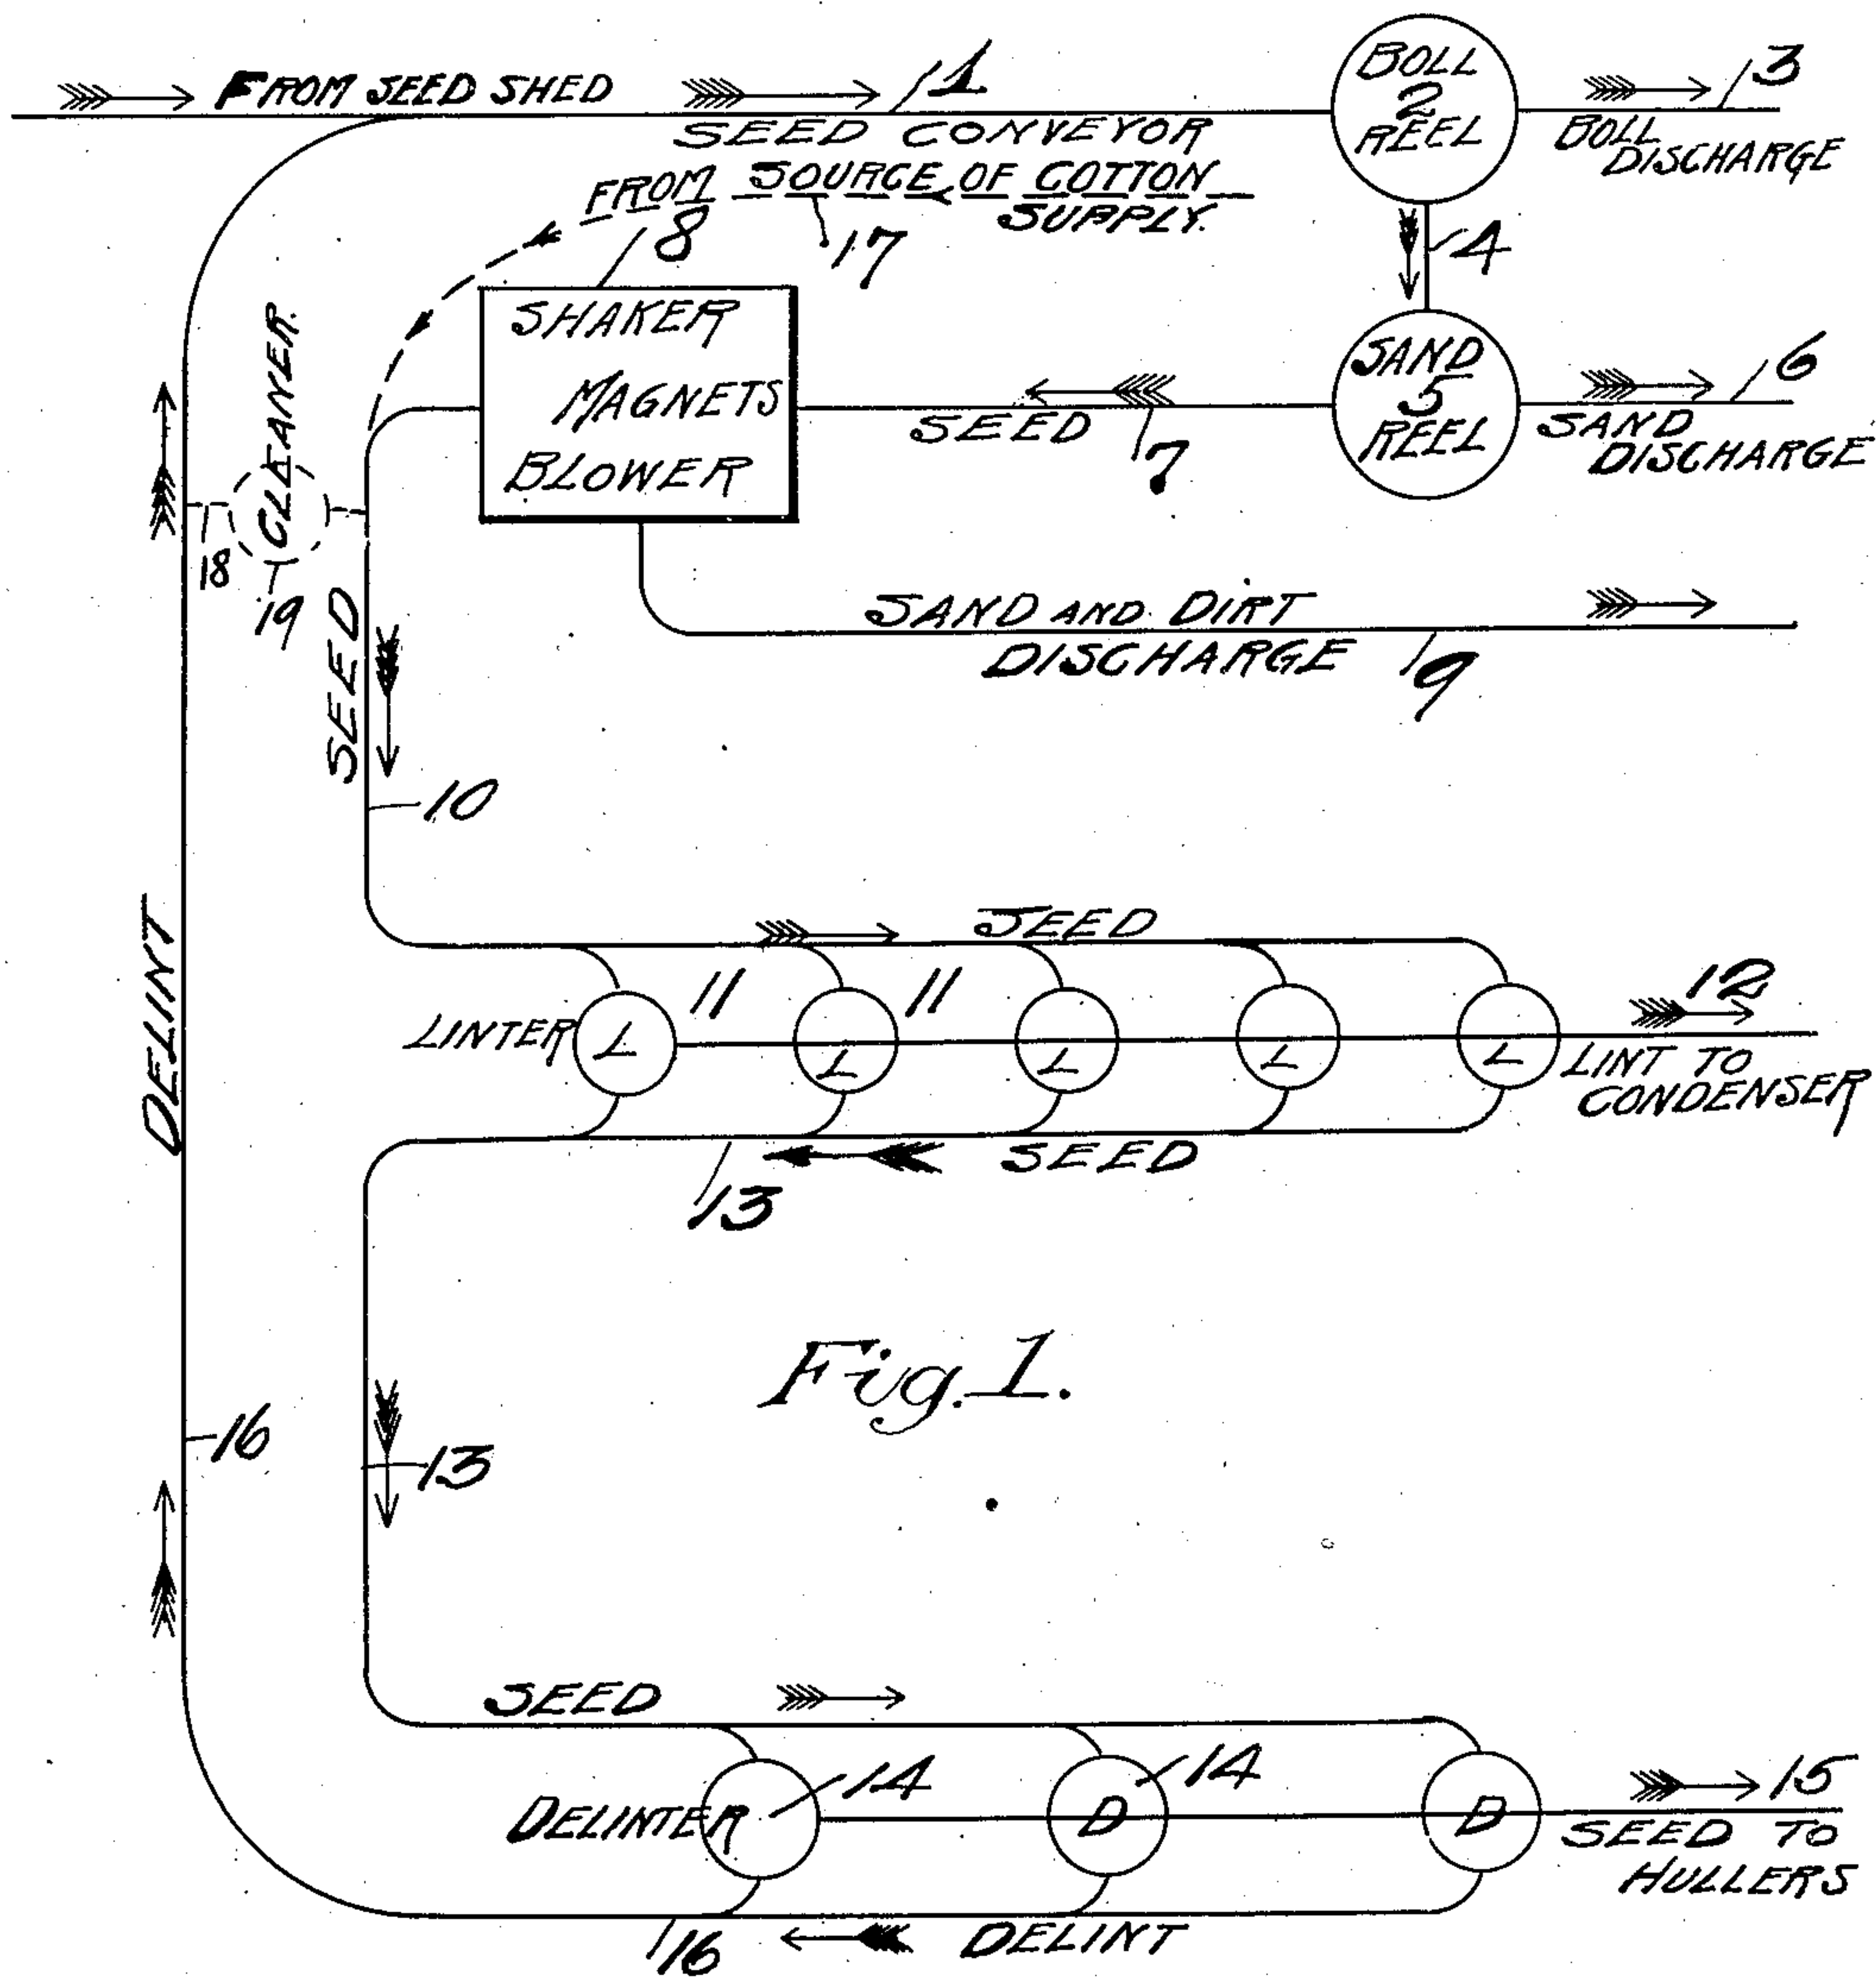 FROM SEED SHED
1
SEED CONVEYOR
BOLL
2
REEL
3
BOLL
DISCHARGE
FROM SOURCE OF COTTON
SUPPLY.
17
4
8
SHAKER
MAGNETS
BLOWER
SEED
7
SAND
5
REEL
6
SAND
DISCHARGE
CLEANER.
18
19
SEED
SAND AND DIRT
DISCHARGE
9
10
DELINT
SEED
LINTER
L
11
L
11
L
L
L
12
LINT TO
CONDENSER
13
SEED
Fig. 1.
16
13
SEED
DELINTER
14
D
14
D
15
SEED TO
HULLERS
16
DELINT